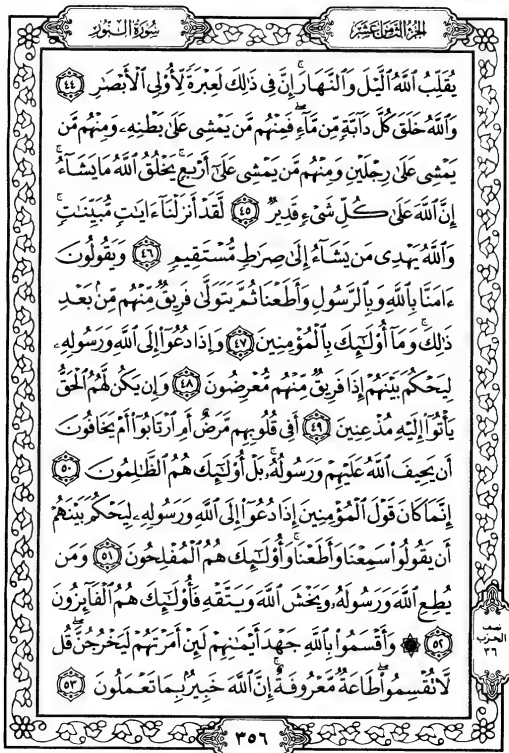 سُورَةُ النُّورِ
الجُزْءُ الثَّامِنَ عَشَرَ
يُقَلِّبُ ٱللَّهُ ٱلَّيۡلَ وَٱلنَّهَارَۚ إِنَّ فِي ذَٰلِكَ لَعِبۡرَةٗ لِّأُوْلِي ٱلۡأَبۡصَٰرِ ٤٤
وَٱللَّهُ خَلَقَ كُلَّ دَآبَّةٖ مِّن مَّآءٖۖ فَمِنۡهُم مَّن يَمۡشِي عَلَىٰ بَطۡنِهِۦ وَمِنۡهُم مَّن
يَمۡشِي عَلَىٰ رِجۡلَيۡنِ وَمِنۡهُم مَّن يَمۡشِي عَلَىٰٓ أَرۡبَعٖۚ يَخۡلُقُ ٱللَّهُ مَا يَشَآءُۚ
إِنَّ ٱللَّهَ عَلَىٰ كُلِّ شَيۡءٖ قَدِيرٞ ٤٥ لَّقَدۡ أَنزَلۡنَآ ءَايَٰتٖ مُّبَيِّنَٰتٖۚ
وَٱللَّهُ يَهۡدِي مَن يَشَآءُ إِلَىٰ صِرَٰطٖ مُّسۡتَقِيمٖ ٤٦ وَيَقُولُونَ
ءَامَنَّا بِٱللَّهِ وَبِٱلرَّسُولِ وَأَطَعۡنَا ثُمَّ يَتَوَلَّىٰ فَرِيقٞ مِّنۡهُم مِّنۢ بَعۡدِ
ذَٰلِكَۚ وَمَآ أُوْلَٰٓئِكَ بِٱلۡمُؤۡمِنِينَ ٤٧ وَإِذَا دُعُوٓاْ إِلَى ٱللَّهِ وَرَسُولِهِۦ
لِيَحۡكُمَ بَيۡنَهُمۡ إِذَا فَرِيقٞ مِّنۡهُم مُّعۡرِضُونَ ٤٨ وَإِن يَكُن لَّهُمُ ٱلۡحَقُّ
يَأۡتُوٓاْ إِلَيۡهِ مُذۡعِنِينَ ٤٩ أَفِي قُلُوبِهِم مَّرَضٌ أَمِ ٱرۡتَابُوٓاْ أَمۡ يَخَافُونَ
أَن يَحِيفَ ٱللَّهُ عَلَيۡهِمۡ وَرَسُولُهُۥۚ بَلۡ أُوْلَٰٓئِكَ هُمُ ٱلظَّٰلِمُونَ ٥٠
إِنَّمَا كَانَ قَوۡلَ ٱلۡمُؤۡمِنِينَ إِذَا دُعُوٓاْ إِلَى ٱللَّهِ وَرَسُولِهِۦ لِيَحۡكُمَ بَيۡنَهُمۡ
أَن يَقُولُواْ سَمِعۡنَا وَأَطَعۡنَاۚ وَأُوْلَٰٓئِكَ هُمُ ٱلۡمُفۡلِحُونَ ٥١ وَمَن
يُطِعِ ٱللَّهَ وَرَسُولَهُۥ وَيَخۡشَ ٱللَّهَ وَيَتَّقۡهِ فَأُوْلَٰٓئِكَ هُمُ ٱلۡفَآئِزُونَ
٥٢ ۞ وَأَقۡسَمُواْ بِٱللَّهِ جَهۡدَ أَيۡمَٰنِهِمۡ لَئِنۡ أَمَرۡتَهُمۡ لَيَخۡرُجُنَّۖ قُل
لَّا تُقۡسِمُواْۖ طَاعَةٞ مَّعۡرُوفَةٌۚ إِنَّ ٱللَّهَ خَبِيرُۢ بِمَا تَعۡمَلُونَ ٥٣
نصف
الحزب
٣٦
٣٥٦